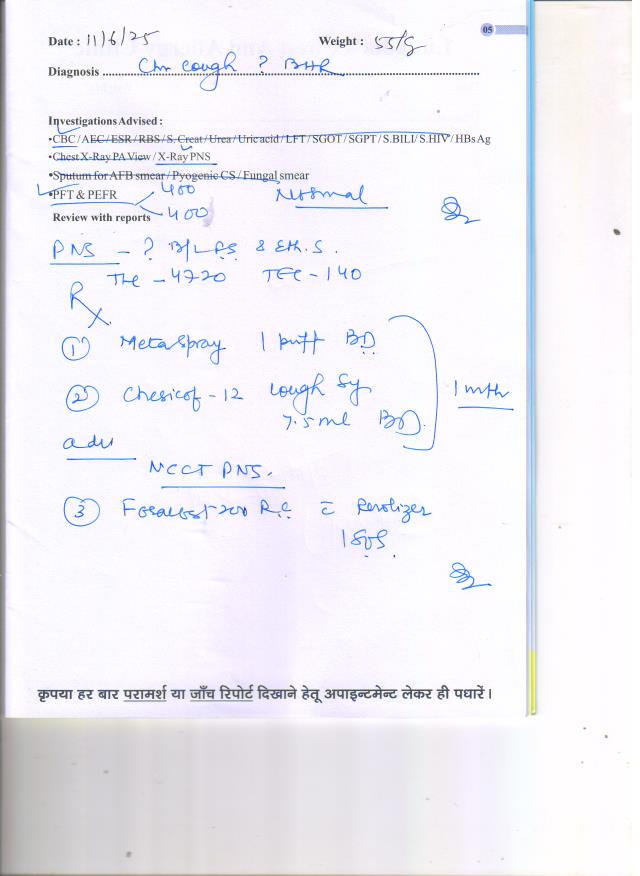 05
Date : 11/6/25 Weight : 55kg
Diagnosis Chr cough ? BHR
Investigations Advised :
•CBC / AEC / ESR / RBS / S. Creat / Urea / Uric acid / LFT / SGOT / SGPT / S.BILI / S.HIV / HBs Ag
•Chest X-Ray PA View / X-Ray PNS
•Sputum for AFB smear / Pyogenic CS / Fungal smear
•PFT & PEFR 400 Normal
400
Review with reports
PNS - ? B/L PS & Eth. S.
TLC - 4720 TEC - 140
Rx
① Metaspray 1 puff BD
② Chesicof - 12 cough Sy
7.5 ml BD
1 mth
adv
NCCT PNS.
③ 200 R.C c̄ Revolizer
1 SOS
कृपया हर बार परामर्श या जाँच रिपोर्ट दिखाने हेतू अपाइन्टमेन्ट लेकर ही पधारें।